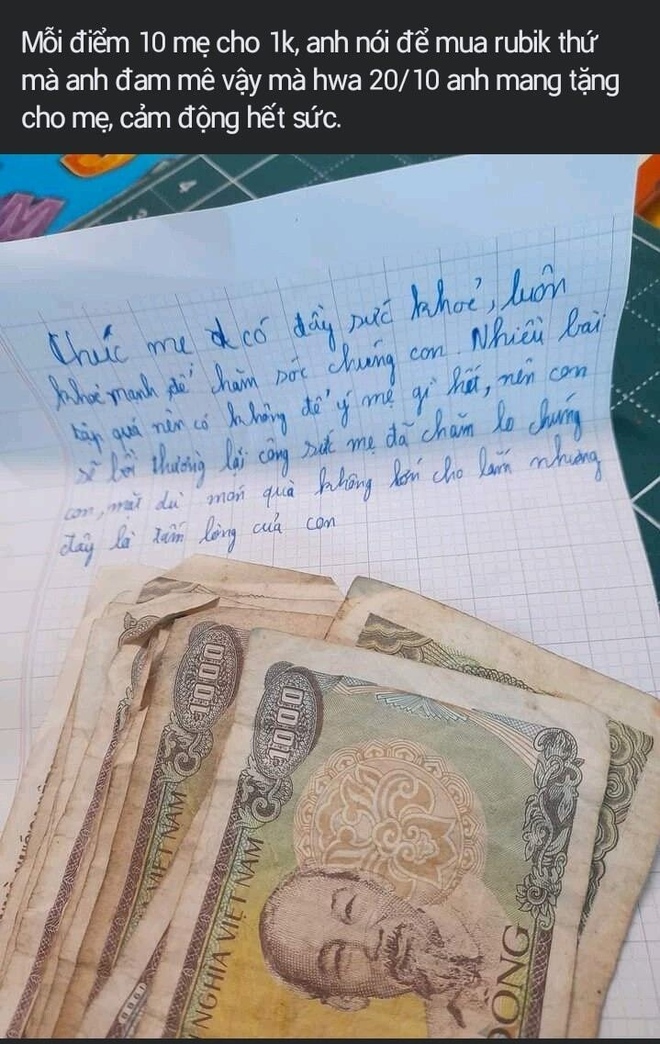 Mỗi điểm 10 mẹ cho 1k, anh nói để mua rubik thứ
mà anh đam mê vậy mà hwa 20/10 anh mang tặng
cho mẹ, cảm động hết sức.
Chúc mẹ có đầy sức khoẻ, luôn
khoẻ mạnh để chăm sóc chúng con. Nhiều bài
tập quá nên có không để ý mẹ gì hết, nên con
sẽ bồi thường lại công sức mẹ đã chăm lo chúng
con, mặt dù món quà không lớn cho lắm nhưng
đây là tấm lòng của con
1000
1000
VIỆT NAM
NGHĨA VIỆT NAM
ĐỒNG
1000